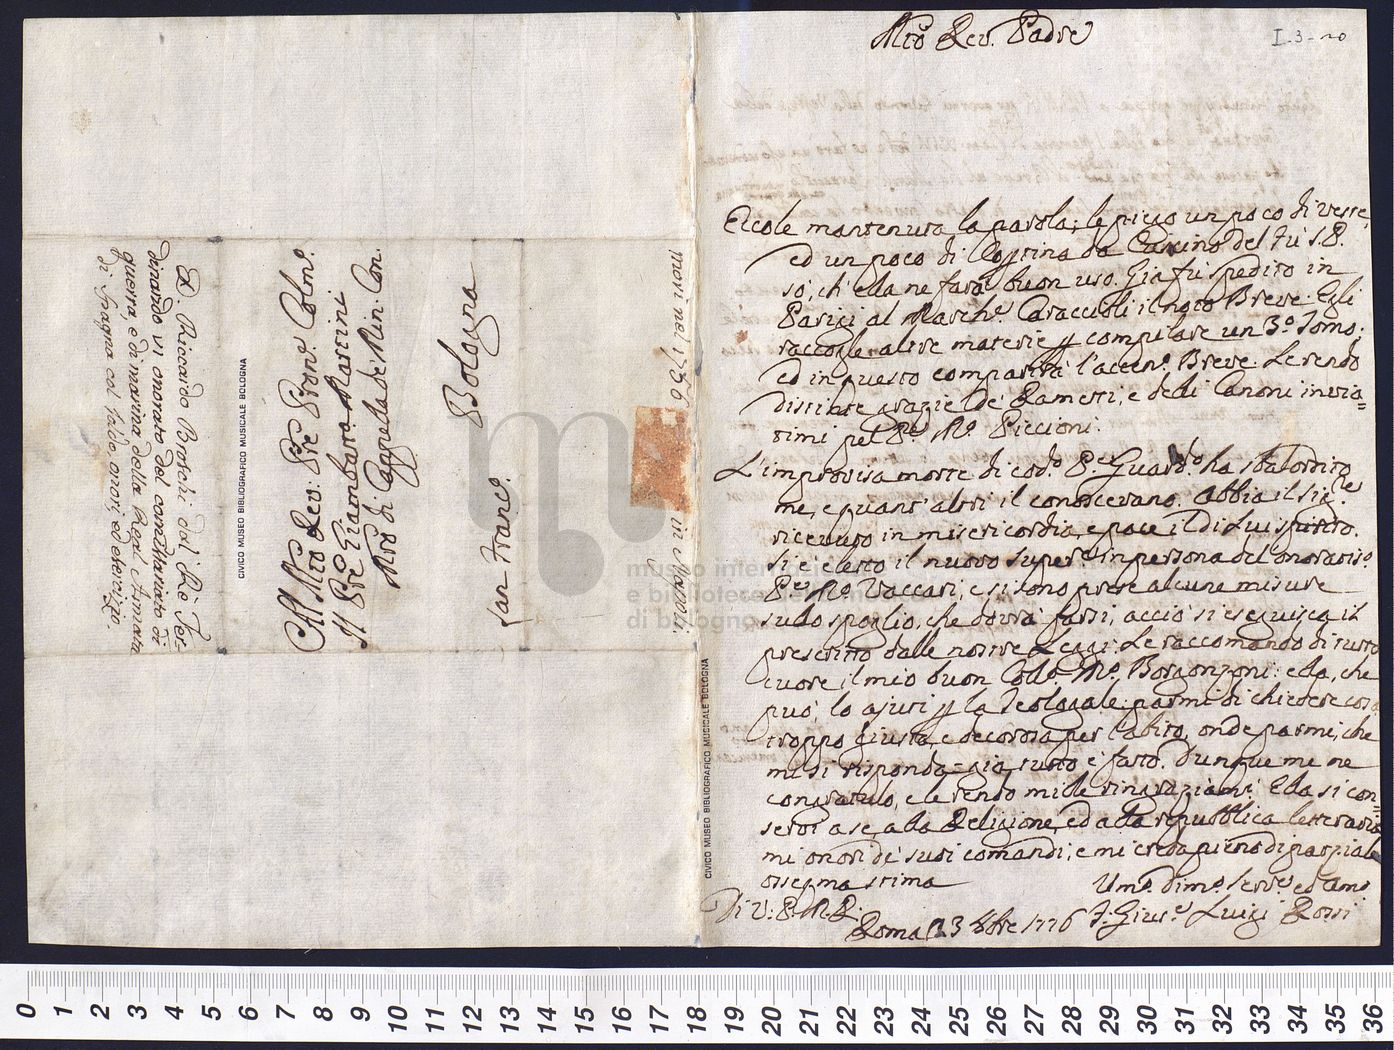 Mro Rev. Padre
I-3-20
Eccole mantenuta la parola; le piego un poco di vesse,
ed un poco di Cortina da Cuscino del fù S. P.
so, ch'ella ne farà buon uso. Già fu spedito in
Parigi al March.e Caraccioli il noto Breve. Egli
raccoglie altre materie p compilare un 3.o Tomo;
ed in questo comparirà l'accen.o Breve. Le rendo
distinte grazie de' Rametti, e de di Canoni invia=
timi pel P.re M.o Piccioni.
L'improvisa morte di cod.o P.e Guard.o ha sbalordito
me, e quant'altri il conoscevano. Abbia il Sig.re
ricevuto in misericordia, e pace il di Lui spirito.
Si è eletto il nuovo Super.e in persona del onoratis.o
P.re M.o Vaccari, e si sono prese alcune misure
sullo spoglio, che dovrà farsi, acciò si eseguisca il
prescritto dalle nostre Leggi. Le raccomando di tutto
cuore il mio buon Coll.o M.o Borgonzoni: ella, che
può, lo ajuti p la Teologale: parmi di chiedere cosa
troppo giusta, e decorosa per l'abito, onde parmi, che
mi si risponda = già tutto è fatto. Dunque me ne
congratulo, e le rendo mille ringraziam.i Ella si con=
servi a se, alla Religione, ed alla repubblica letteraria
mi onori de' suoi comandi, e mi creda pieno di parziale
ossequia stima
Di V: P. M. R.
Um.o dm.o Serv.e ed Am.o
Roma 23 8bre 1776 F. Gius.e Luigi Rossi
CIVICO MUSEO BIBLIOGRAFICO MUSICALE BOLOGNA
Al Mro Rev: Pre Pron.e Colmo.
Il Pre Giambatta Martini
Mro di Cappella de' Min: Con.
San Franc.o
Bologna
D. Riccardo Broschi dal Rè Fer=
dinando VI onorato del Commissariato di
guerra, e di marina della Real Armata
di Spagna col soldo, onori, ed esercizio.
morì nel 1756 in
CIVICO MUSEO BIBLIOGRAFICO MUSICALE BOLOGNA
museo internazionale
e biblioteca della musica
di bologna
0 1 2 3 4 5 6 7 8 9 10 11 12 13 14 15 16 17 18 19 20 21 22 23 24 25 26 27 28 29 30 31 32 33 34 35 36